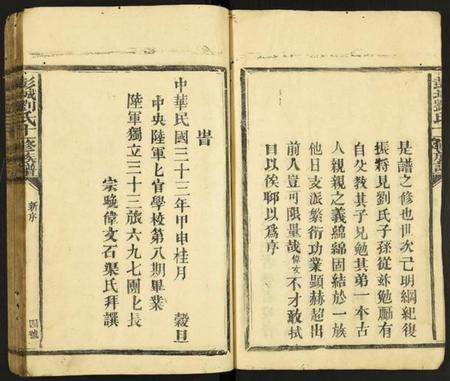 彭城劉氏
修族譜
是譜之修也世次己明綱紀復
振將見劉氏子孫從玆勉勵有
自父教其子兄勉其弟一本古
人親親之義綿綿固結於一族
他日支派繁衍功業顯赫超出
前人豈可限量哉偉文不才敢拭
目以俟聊以爲序
旹
中華民國三十三年甲申桂月 穀旦
中央陸軍七官學校第八期畢業
陸軍獨立三十三旅六九七團七長
宗晚偉文石渠氏拜譔
彭城劉氏十修族譜
新序
四號